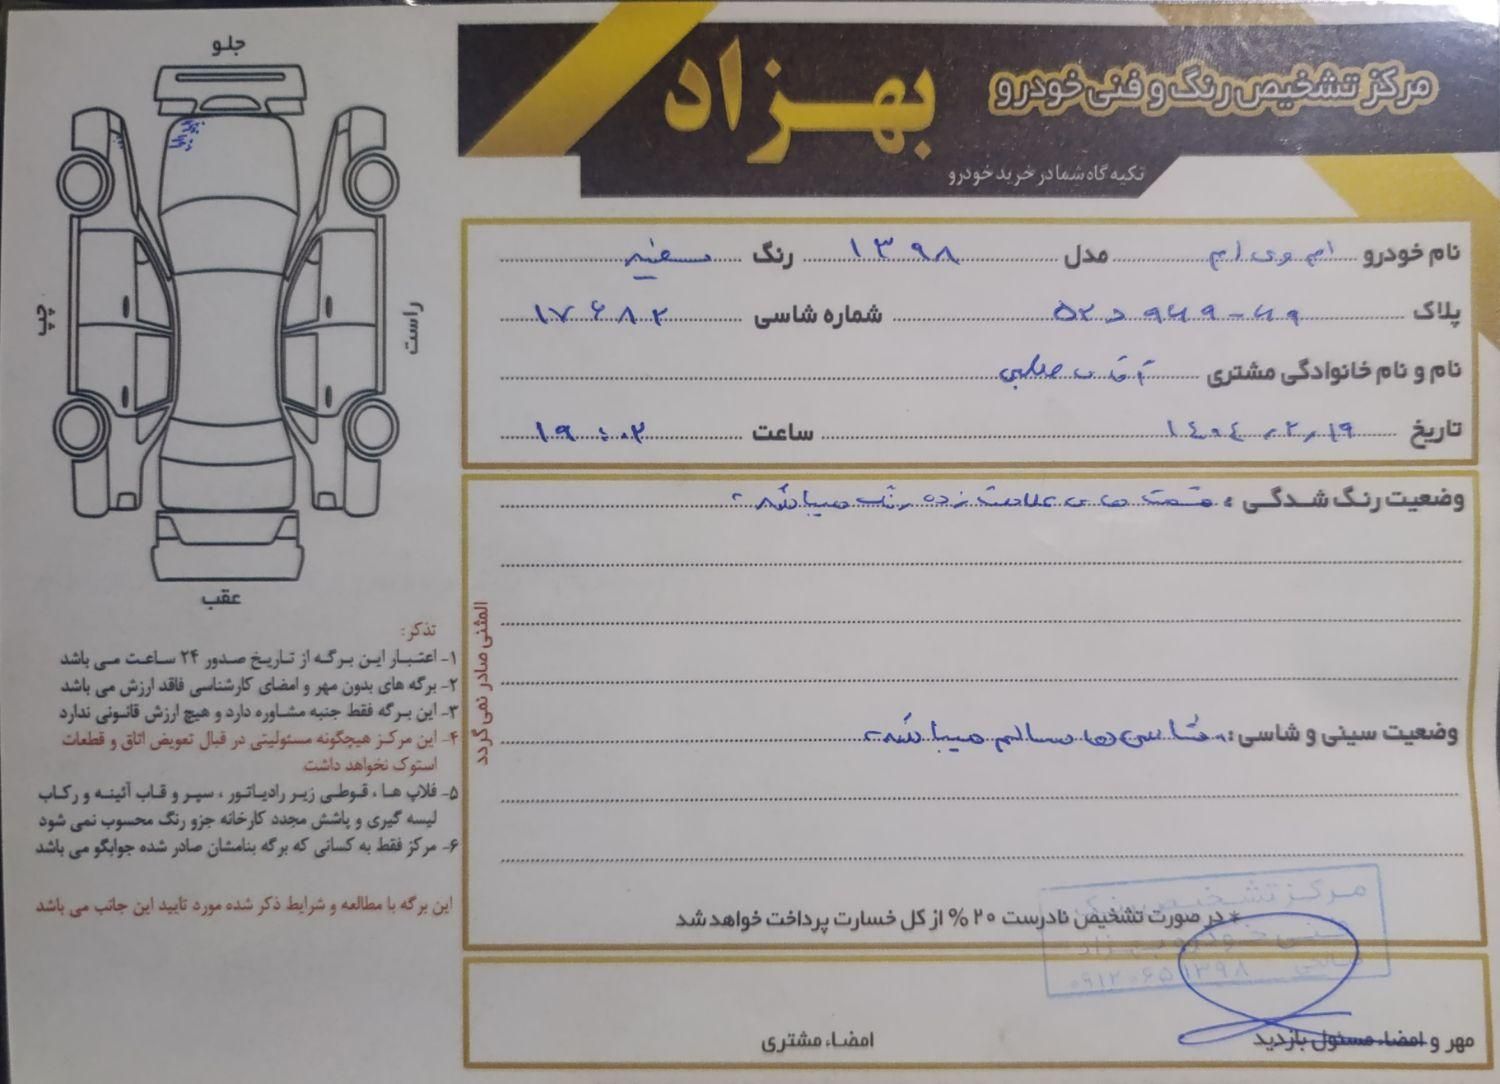 مرکز تشخیص رنگ و فنی خودرو
بهزاد
تکیه گاه شما در خرید خودرو
نام خودرو ام وی ام مدل ۱۳۹۸ رنگ سفید
پلاک شماره شاسی ۱۷۶۸۲
نام و نام خانوادگی مشتری آقای
تاریخ ۱۴۰۴،۲،۱۹ ساعت ۱۹:۰۲
وضعیت رنگ شدگی : قسمت های علامت زده رنگ میباشد
وضعیت سینی و شاسی : شاسی ها سالم میباشد
* در صورت تشخیص نادرست ۲۰ % از کل خسارت پرداخت خواهد شد
المثنی صادر نمی گردد
مرکز تشخیص رنگ
فنی خودرو بهزاد
صالحی ۰۹۱۲۰۶۵۱۳۹۸
مهر و امضاء مسئول بازدید
امضاء مشتری
جلو
چپ
راست
عقب
تذکر:
۱- اعتبار این برگه از تاریخ صدور ۲۴ ساعت می باشد
۲- برگه های بدون مهر و امضای کارشناسی فاقد ارزش می باشد
۳- این برگه فقط جنبه مشاوره دارد و هیچ ارزش قانونی ندارد
۴- این مرکز هیچگونه مسئولیتی در قبال تعویض اتاق و قطعات
استوک نخواهد داشت
۵- فلاپ ها ، قوطی زیر رادیاتور ، سپر و قاب آئینه و رکاب
لیسه گیری و پاشش مجدد کارخانه جزو رنگ محسوب نمی شود
۶- مرکز فقط به کسانی که برگه بنامشان صادر شده جوابگو می باشد
این برگه با مطالعه و شرایط ذکر شده مورد تایید این جانب می باشد